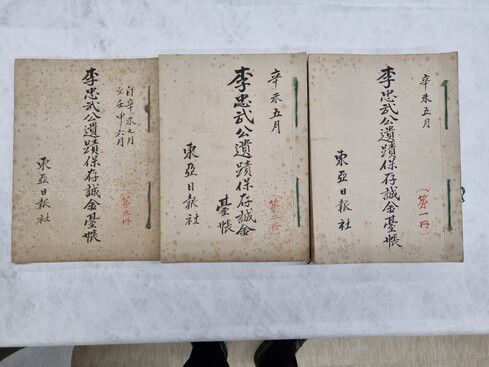 辛未五月
(第一冊)
李忠武公遺蹟保存誠金臺帳
東亞日報社
辛未五月
李忠武公遺蹟保存誠金
臺帳
東亞日報社
自辛未 月
至壬申六月
李忠武公遺蹟保存誠金臺帳
東亞日報社